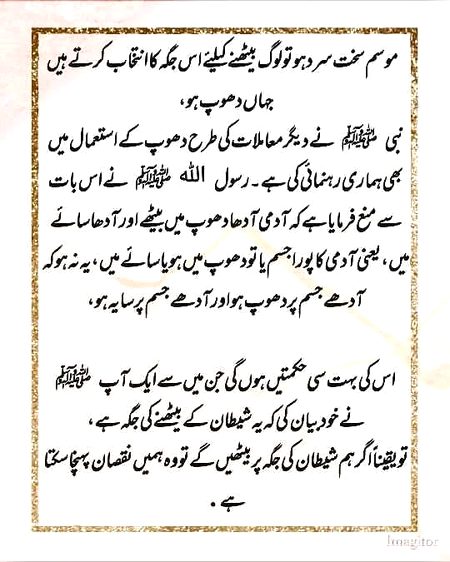 موسم سخت سرد ہو تو لوگ بیٹھنے کیلیئے اس جگہ کا انتخاب کرتے ہیں
جہاں دھوپ ہو،
نبی ﷺ نے دیگر معاملات کی طرح دھوپ کے استعمال میں
بھی ہماری رہنمائی کی ہے۔ رسول الله ﷺ نے اس بات
سے منع فرمایا ہے کہ آدمی آدھا دھوپ میں بیٹھے اور آدھا سائے
میں، یعنی آدمی کا پورا جسم یا تو دھوپ میں ہو یا سائے میں، یہ نہ ہو کہ
آدھے جسم پر دھوپ ہو اور آدھے جسم پر سایہ ہو،
اس کی بہت سی حکمتیں ہوں گی جن میں سے ایک آپ ﷺ
نے خود بیان کی کہ یہ شیطان کے بیٹھنے کی جگہ ہے،
تو یقیناً اگر ہم شیطان کی جگہ پر بیٹھیں گے تو وہ ہمیں نقصان پہنچا سکتا
ہے .
Imagitor